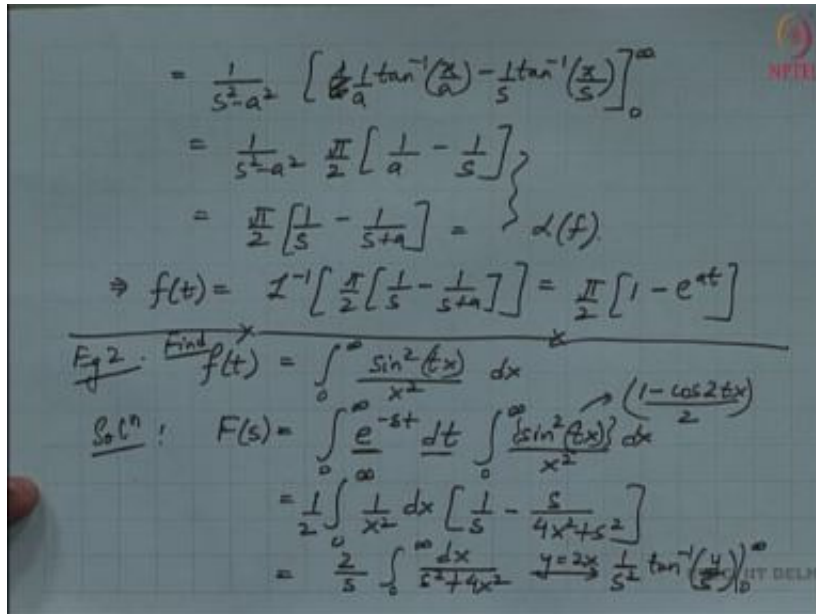 NPTEL
= 1/(s²-a²) [1/a tan⁻¹(x/a) - 1/s tan⁻¹(x/s)]₀^∞
= 1/(s²-a²) π/2 [1/a - 1/s]
= π/2 [1/s - 1/(s+a)] = } L(f).
⇒ f(t) = L⁻¹[π/2 [1/s - 1/(s+a)]] = π/2 [1 - e^{at}]
Eg 2. Find f(t) = ∫₀^∞ sin²(tx)/x² dx
Solⁿ: F(s) = ∫₀^∞ e^{-st} dt ∫₀^∞ {sin²(tx)}/x² dx → ((1-cos2tx)/2)
= 1/2 ∫₀^∞ 1/x² dx [1/s - s/(4x²+s²)]
= 2/s ∫₀^∞ dx/(s²+4x²) y=2x→ 1/s² tan⁻¹(y/s)|₀^∞
IIT DELHI